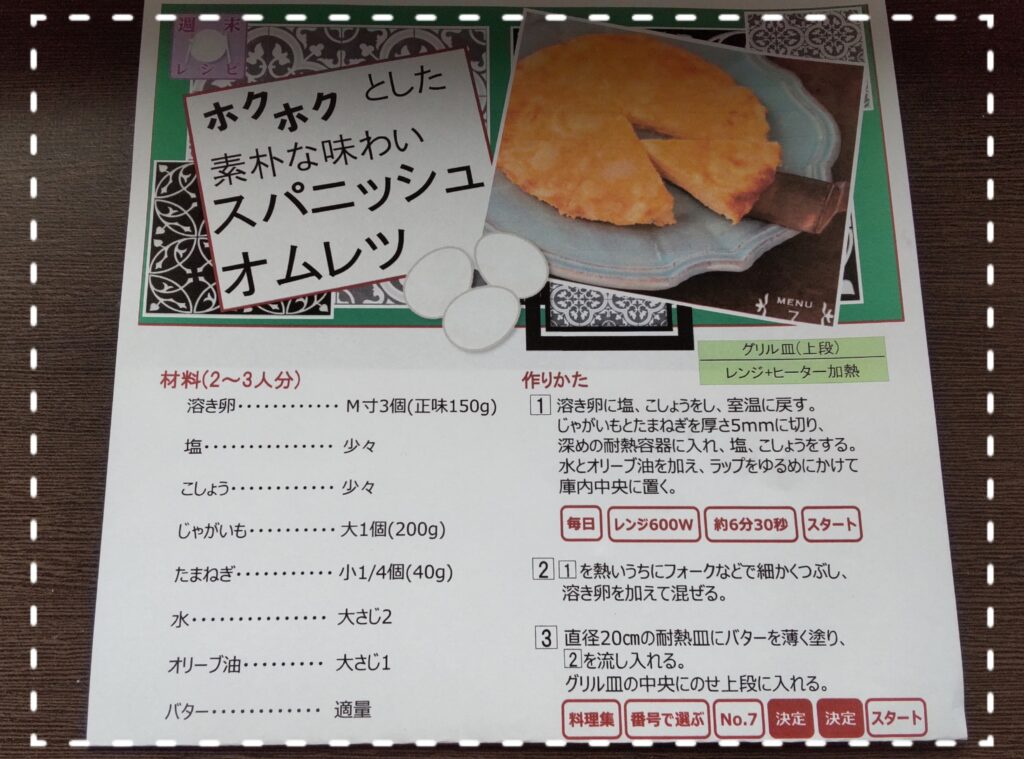 週末
レシピ
ホクホクとした
素朴な味わい
スパニッシュ
オムレツ
MENU
7
グリル皿(上段)
レンジ+ヒーター加熱
材料(2〜3人分)
溶き卵············M寸3個(正味150g)
塩···············少々
こしょう············少々
じゃがいも··········大1個(200g)
たまねぎ···········小1/4個(40g)
水··············大さじ2
オリーブ油·········大さじ1
バター············適量
作りかた
1 溶き卵に塩、こしょうをし、室温に戻す。
じゃがいもとたまねぎを厚さ5mmに切り、
深めの耐熱容器に入れ、塩、こしょうをする。
水とオリーブ油を加え、ラップをゆるめにかけて
庫内中央に置く。
毎日 レンジ600W 約6分30秒 スタート
2 1を熱いうちにフォークなどで細かくつぶし、
溶き卵を加えて混ぜる。
3 直径20㎝の耐熱皿にバターを薄く塗り、
2を流し入れる。
グリル皿の中央にのせ上段に入れる。
料理集 番号で選ぶ No.7 決定 決定 スタート